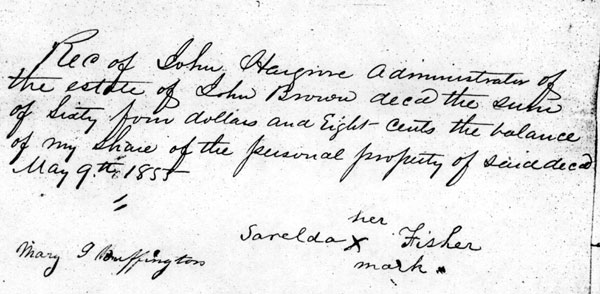 Rec of John Hargrove Administrator of
the estate of John Brown decd the sum
of Sixty four dollars and Eight cents the balance
of my share of the personal property of said decd
May 9th 1855
her
Sarelda X Fisher
mark
Mary J Buffington